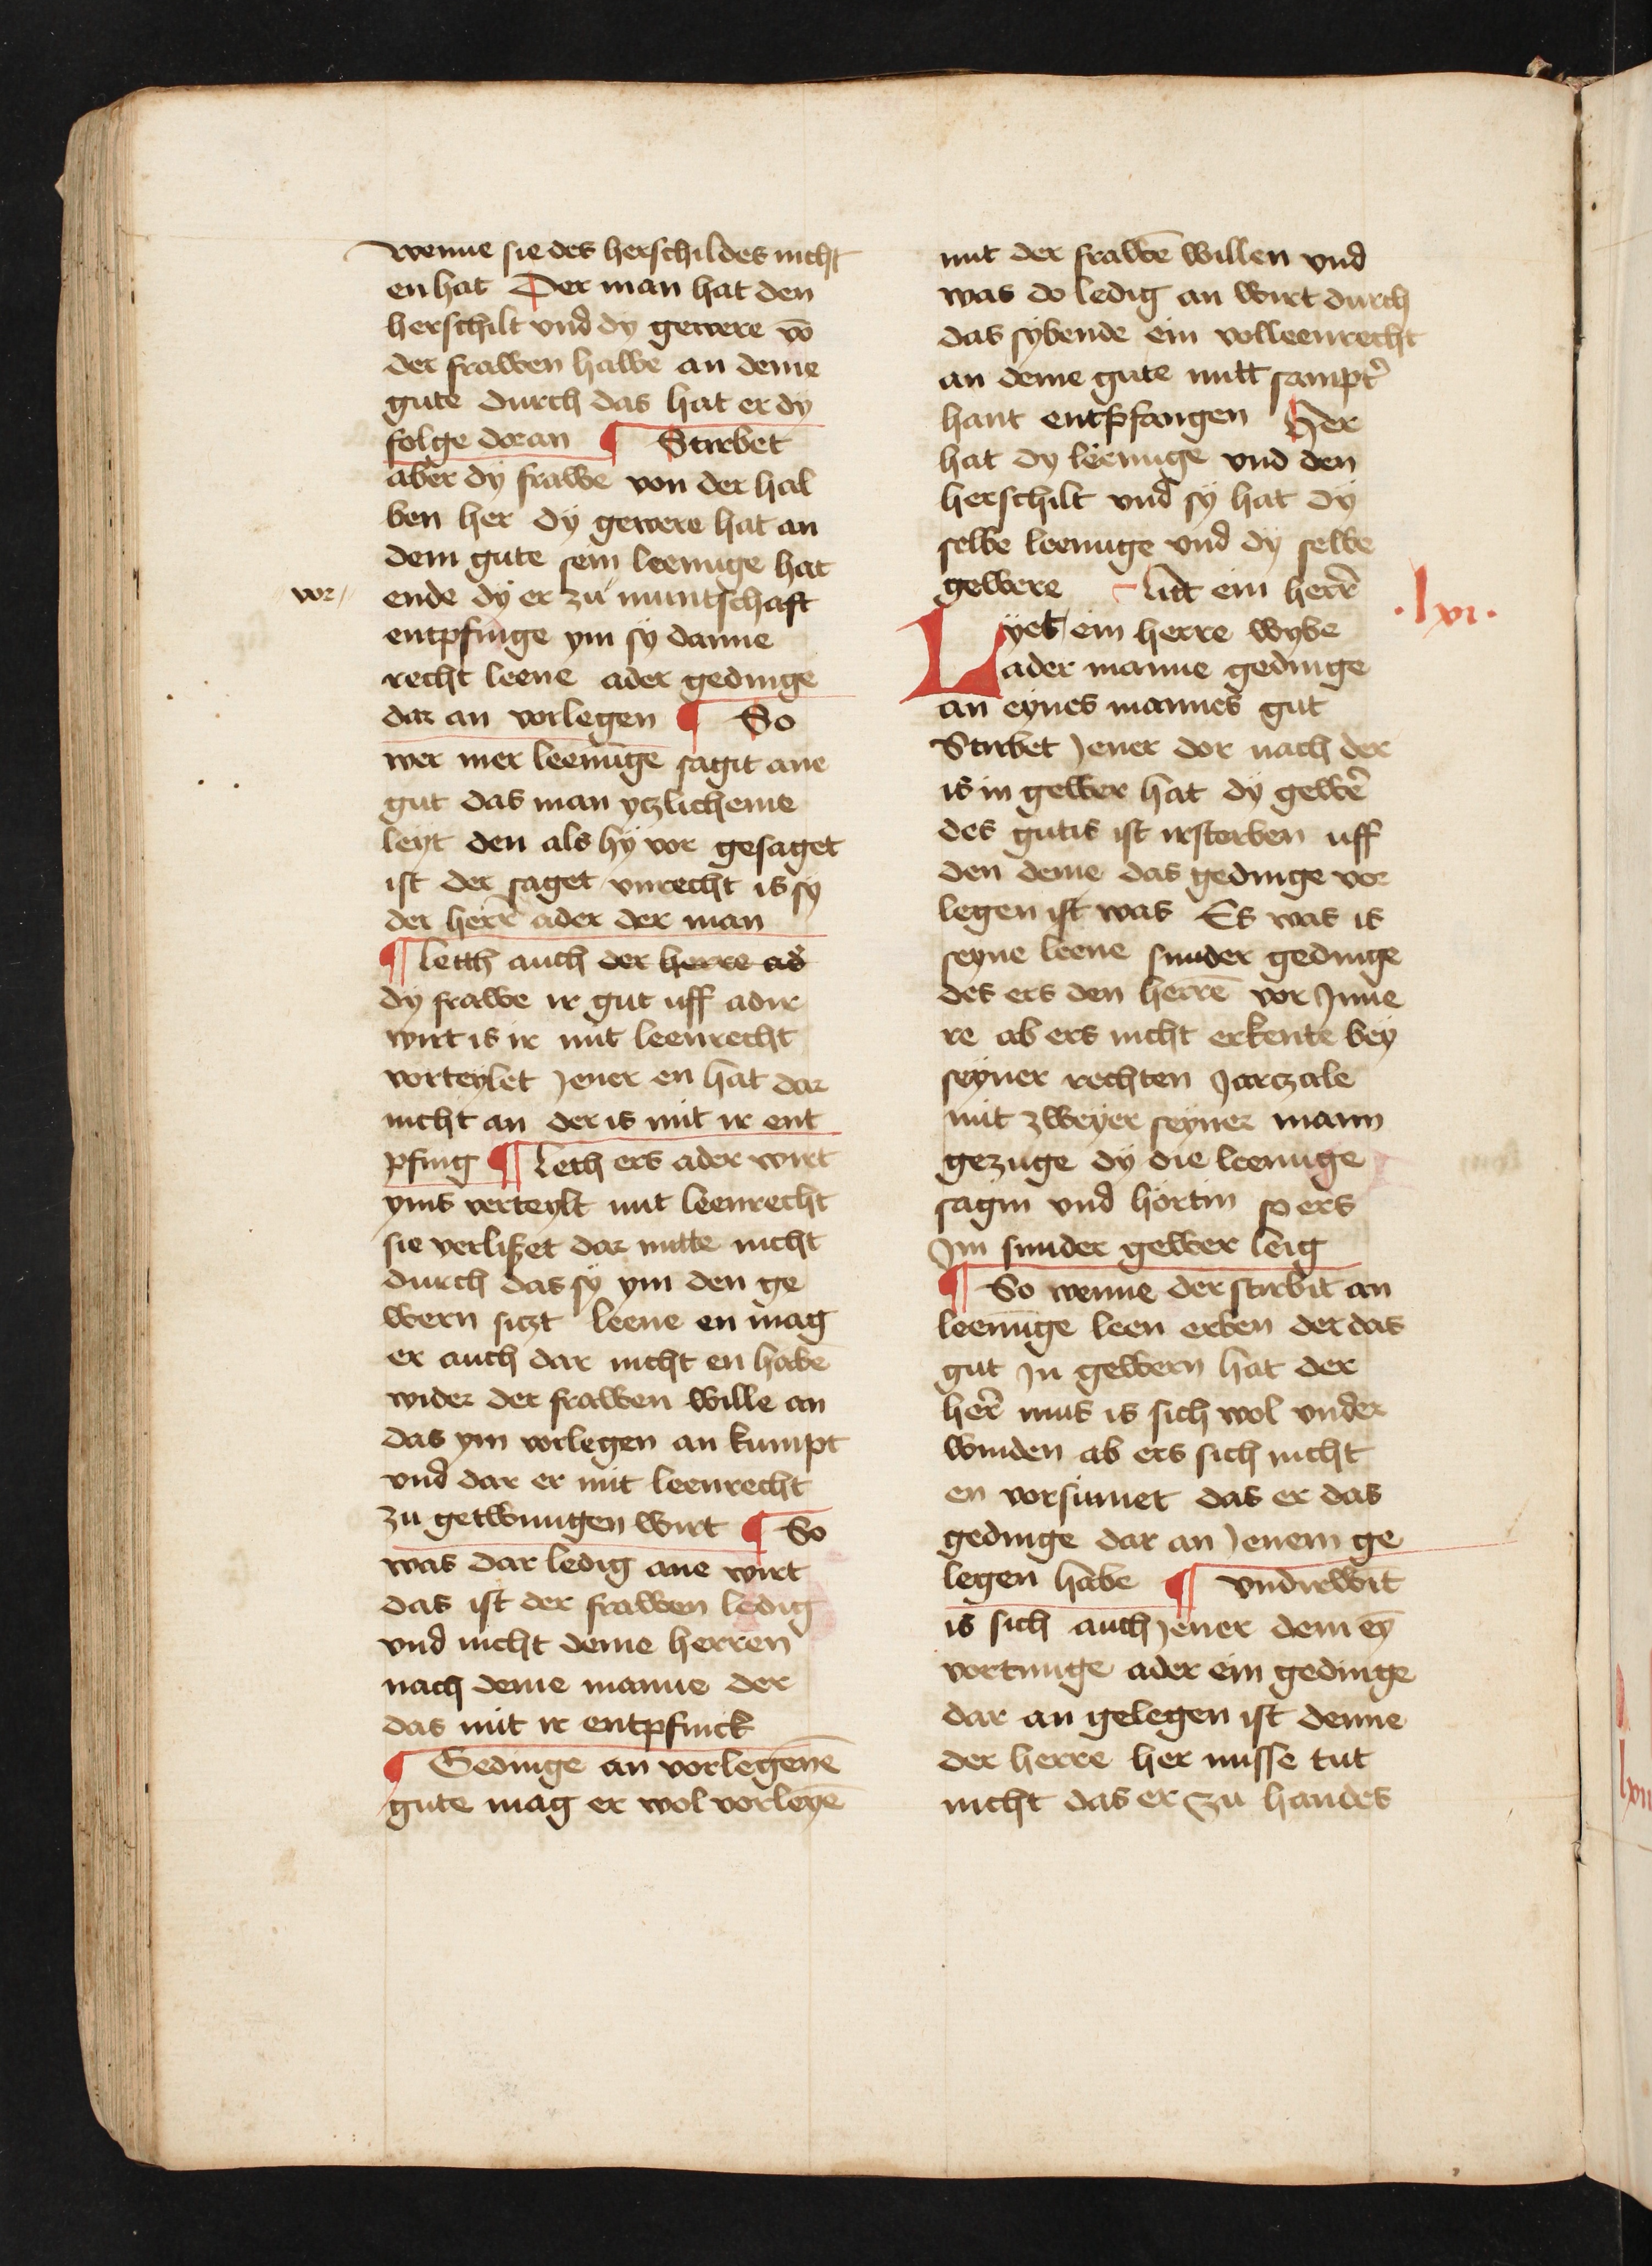 wenne sie des herschildes nicht
en hat Der man hat den
herschilt vnd dy gewere vō
der frawen halbe an deme
gute durch das hat er dy
folge doran ¶ Stirbet
aber dy frawe von der hal
ben her dÿ gewere hat an
dem gute sein leenuge hat
vor/ ende dÿ er zu muntschaft
entpfinge ym sÿ danne
recht leene ader gedinge
dar an vorlegen ¶ So
wer mer leenūge sagit ane
gut das man yczlicheme
leyt den als hÿ vor gesaget
ist der saget vnrecht is sÿ
der herre ader der man
¶ letth auch der herre ad'
dÿ frawe ir gut uff adir
wirt is ir mit leenrecht
vorteylet Jener en hat dar
nicht an der is mit ir ent
pfing ¶ leth ers ader wirt
yms verteylt mit leenrecht
sie verlißet dar mitte nicht
durch das sÿ ym den ge
wern siczt leene en mag
er auch dar nicht en habe
wider der frawen wille an
das ym vorlegen an kumpt
vnd dar er mit leenrecht
zu getwungen wirt ¶ So
was dar ledig ane wirt
das ist der frawen ledig
vnd nicht deme herren
nach deme manne der
das mit ir entpfinck
¶ Gedinge an vorlegenē
gute mag er wol vorleyē
mit der frawē willen vnd
was do ledig an wirt durch
das sÿbende ein volleenrecht
an deme gute mitt sampt'
hant entpfangen Her
hat dy leenuge vnd den
herschilt vnd sÿ hat dÿ
selbe leenuge vnd dÿ selbe
gewere litt ein herr'
·lxi·
Lyet ein herre wybe
ader manne gedinge
an eynes mannes gut
Stirbet Jener dor nach der
is in gewer hat dÿ gewer'
des gutis ist irstorben uff
den deme das gedinge vor
legen ist was Es was is
seyne leene sunder gedinge
des ers den herrē vor Jnne
re ab ers nicht erkente bey
seyner rechten Jarczale
mit zweyer seyner mann
gezuge dÿ die leenuge
sagin vnd hortin so ers
Jm sunder gewer leig
¶ So wenne der stirbit an
leenūge leen erben der das
gut Jn gewern hat der
her' mus is sich wol vnder
winden ab ers sich nicht
en vorsumet das er das
gedinge dar an Jenem ge
legen habe ¶ vndirwit
is sich auch Jener dem eȳ
vortinge ader ein gedinge
dar an gelegen ist denne
der herre her misse tut
nicht das er zu handes